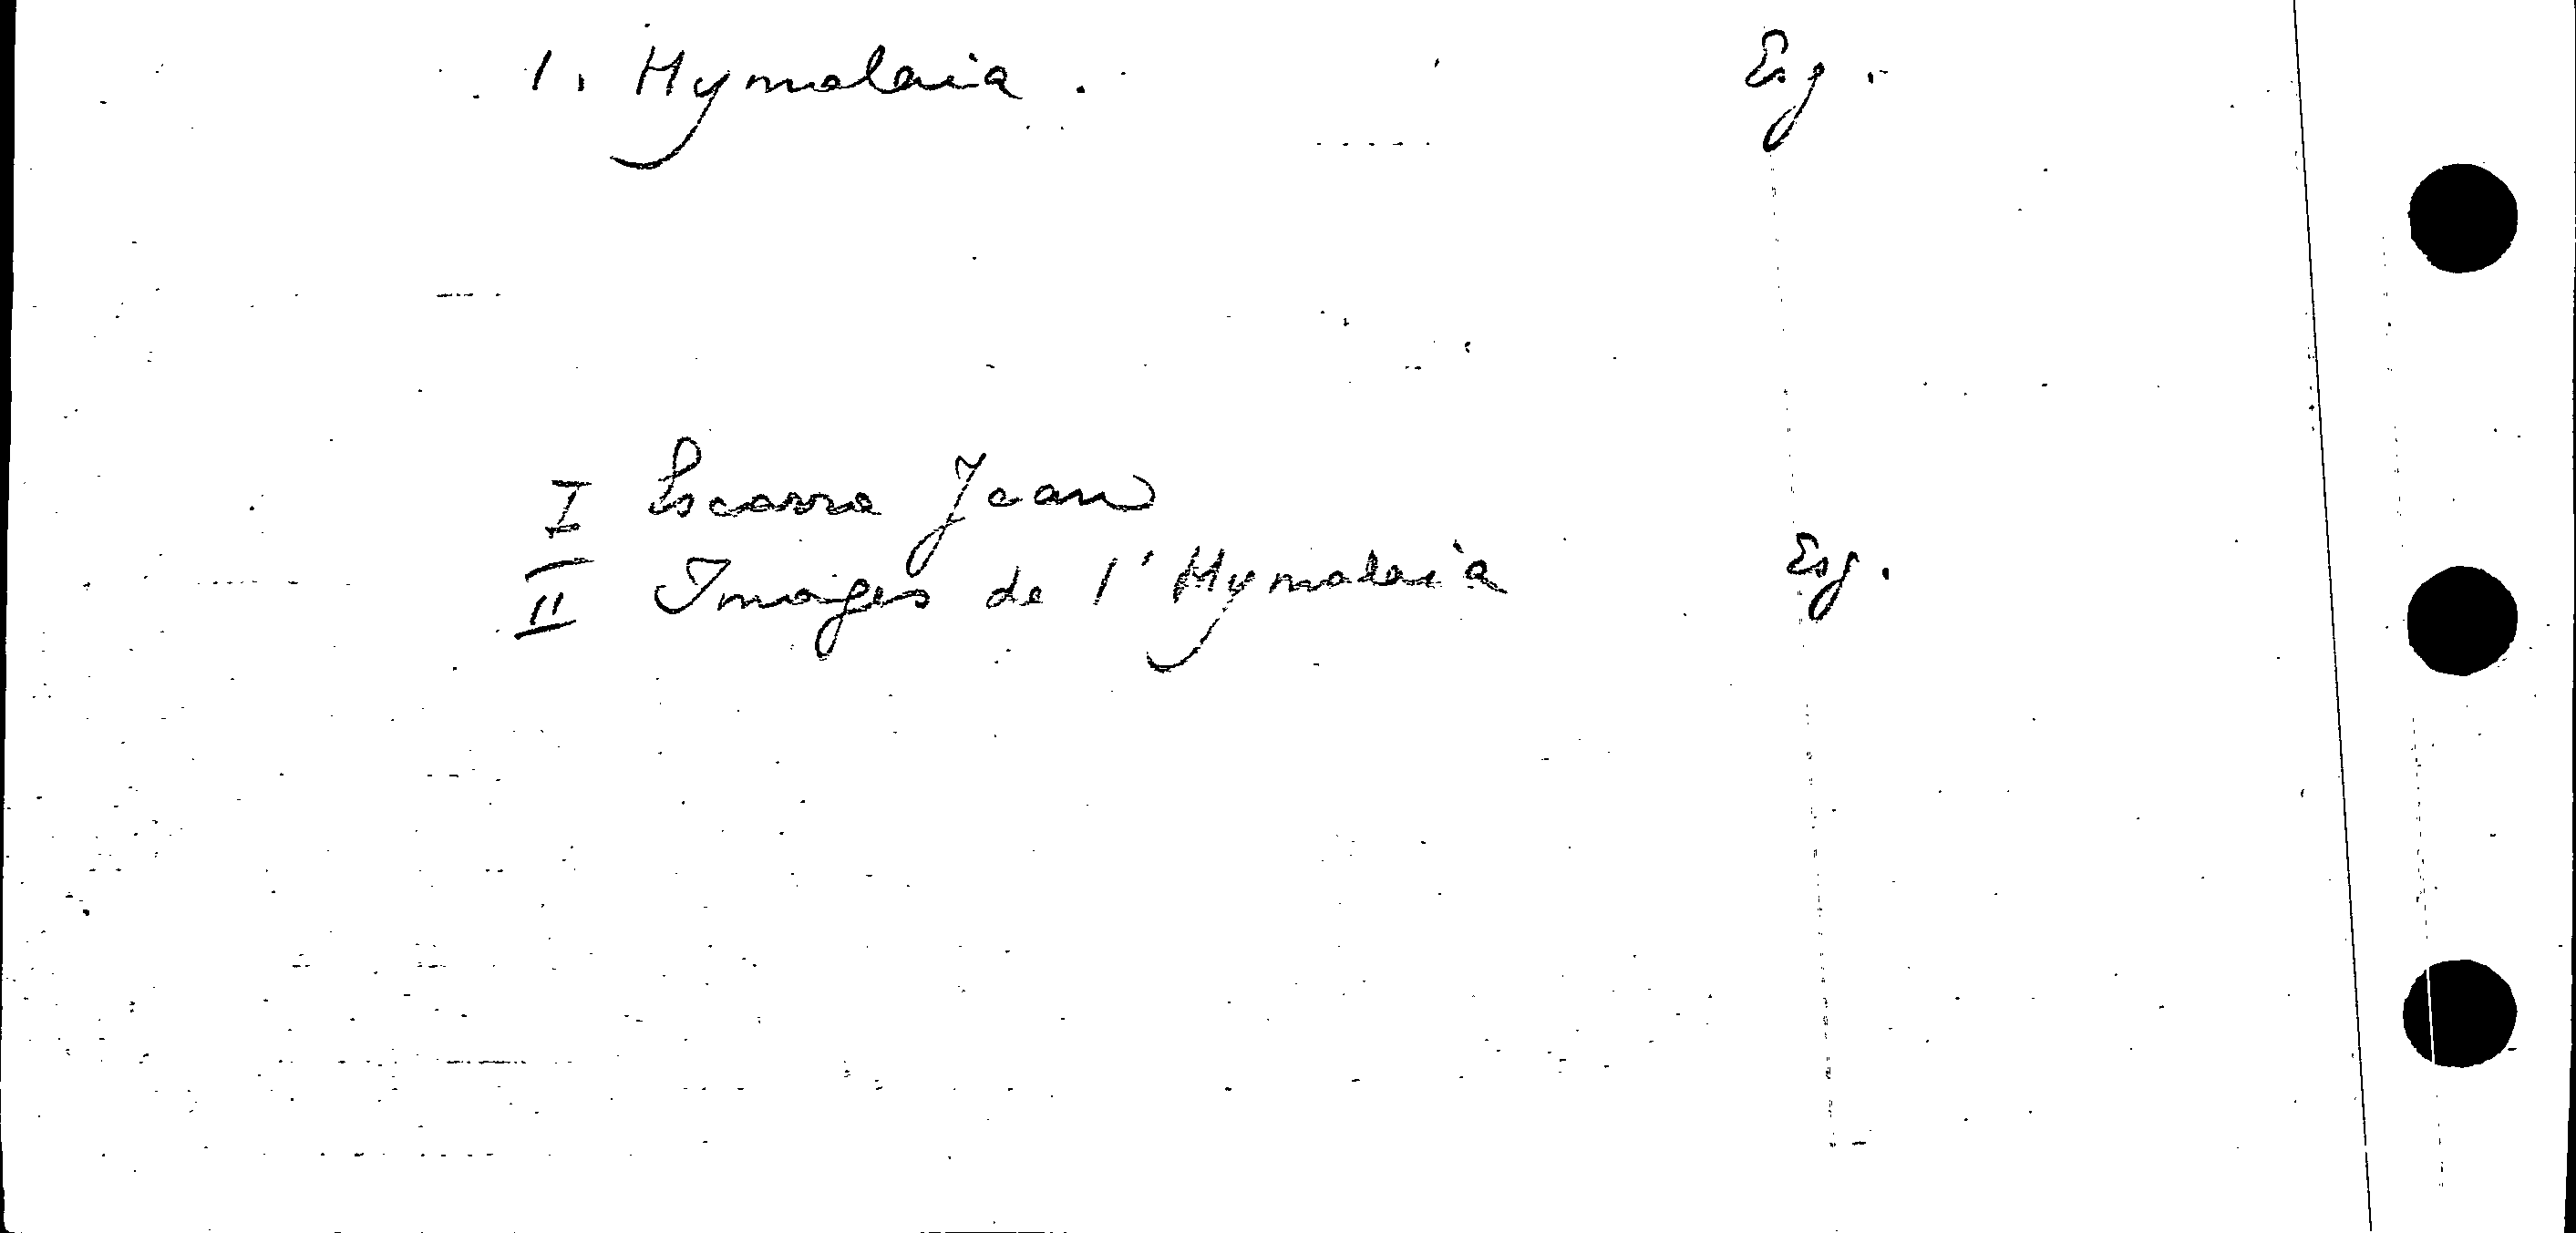 1. Hymalaia. Esg.
I Escarra Jean
II Images de l'Hymalaia Esg.